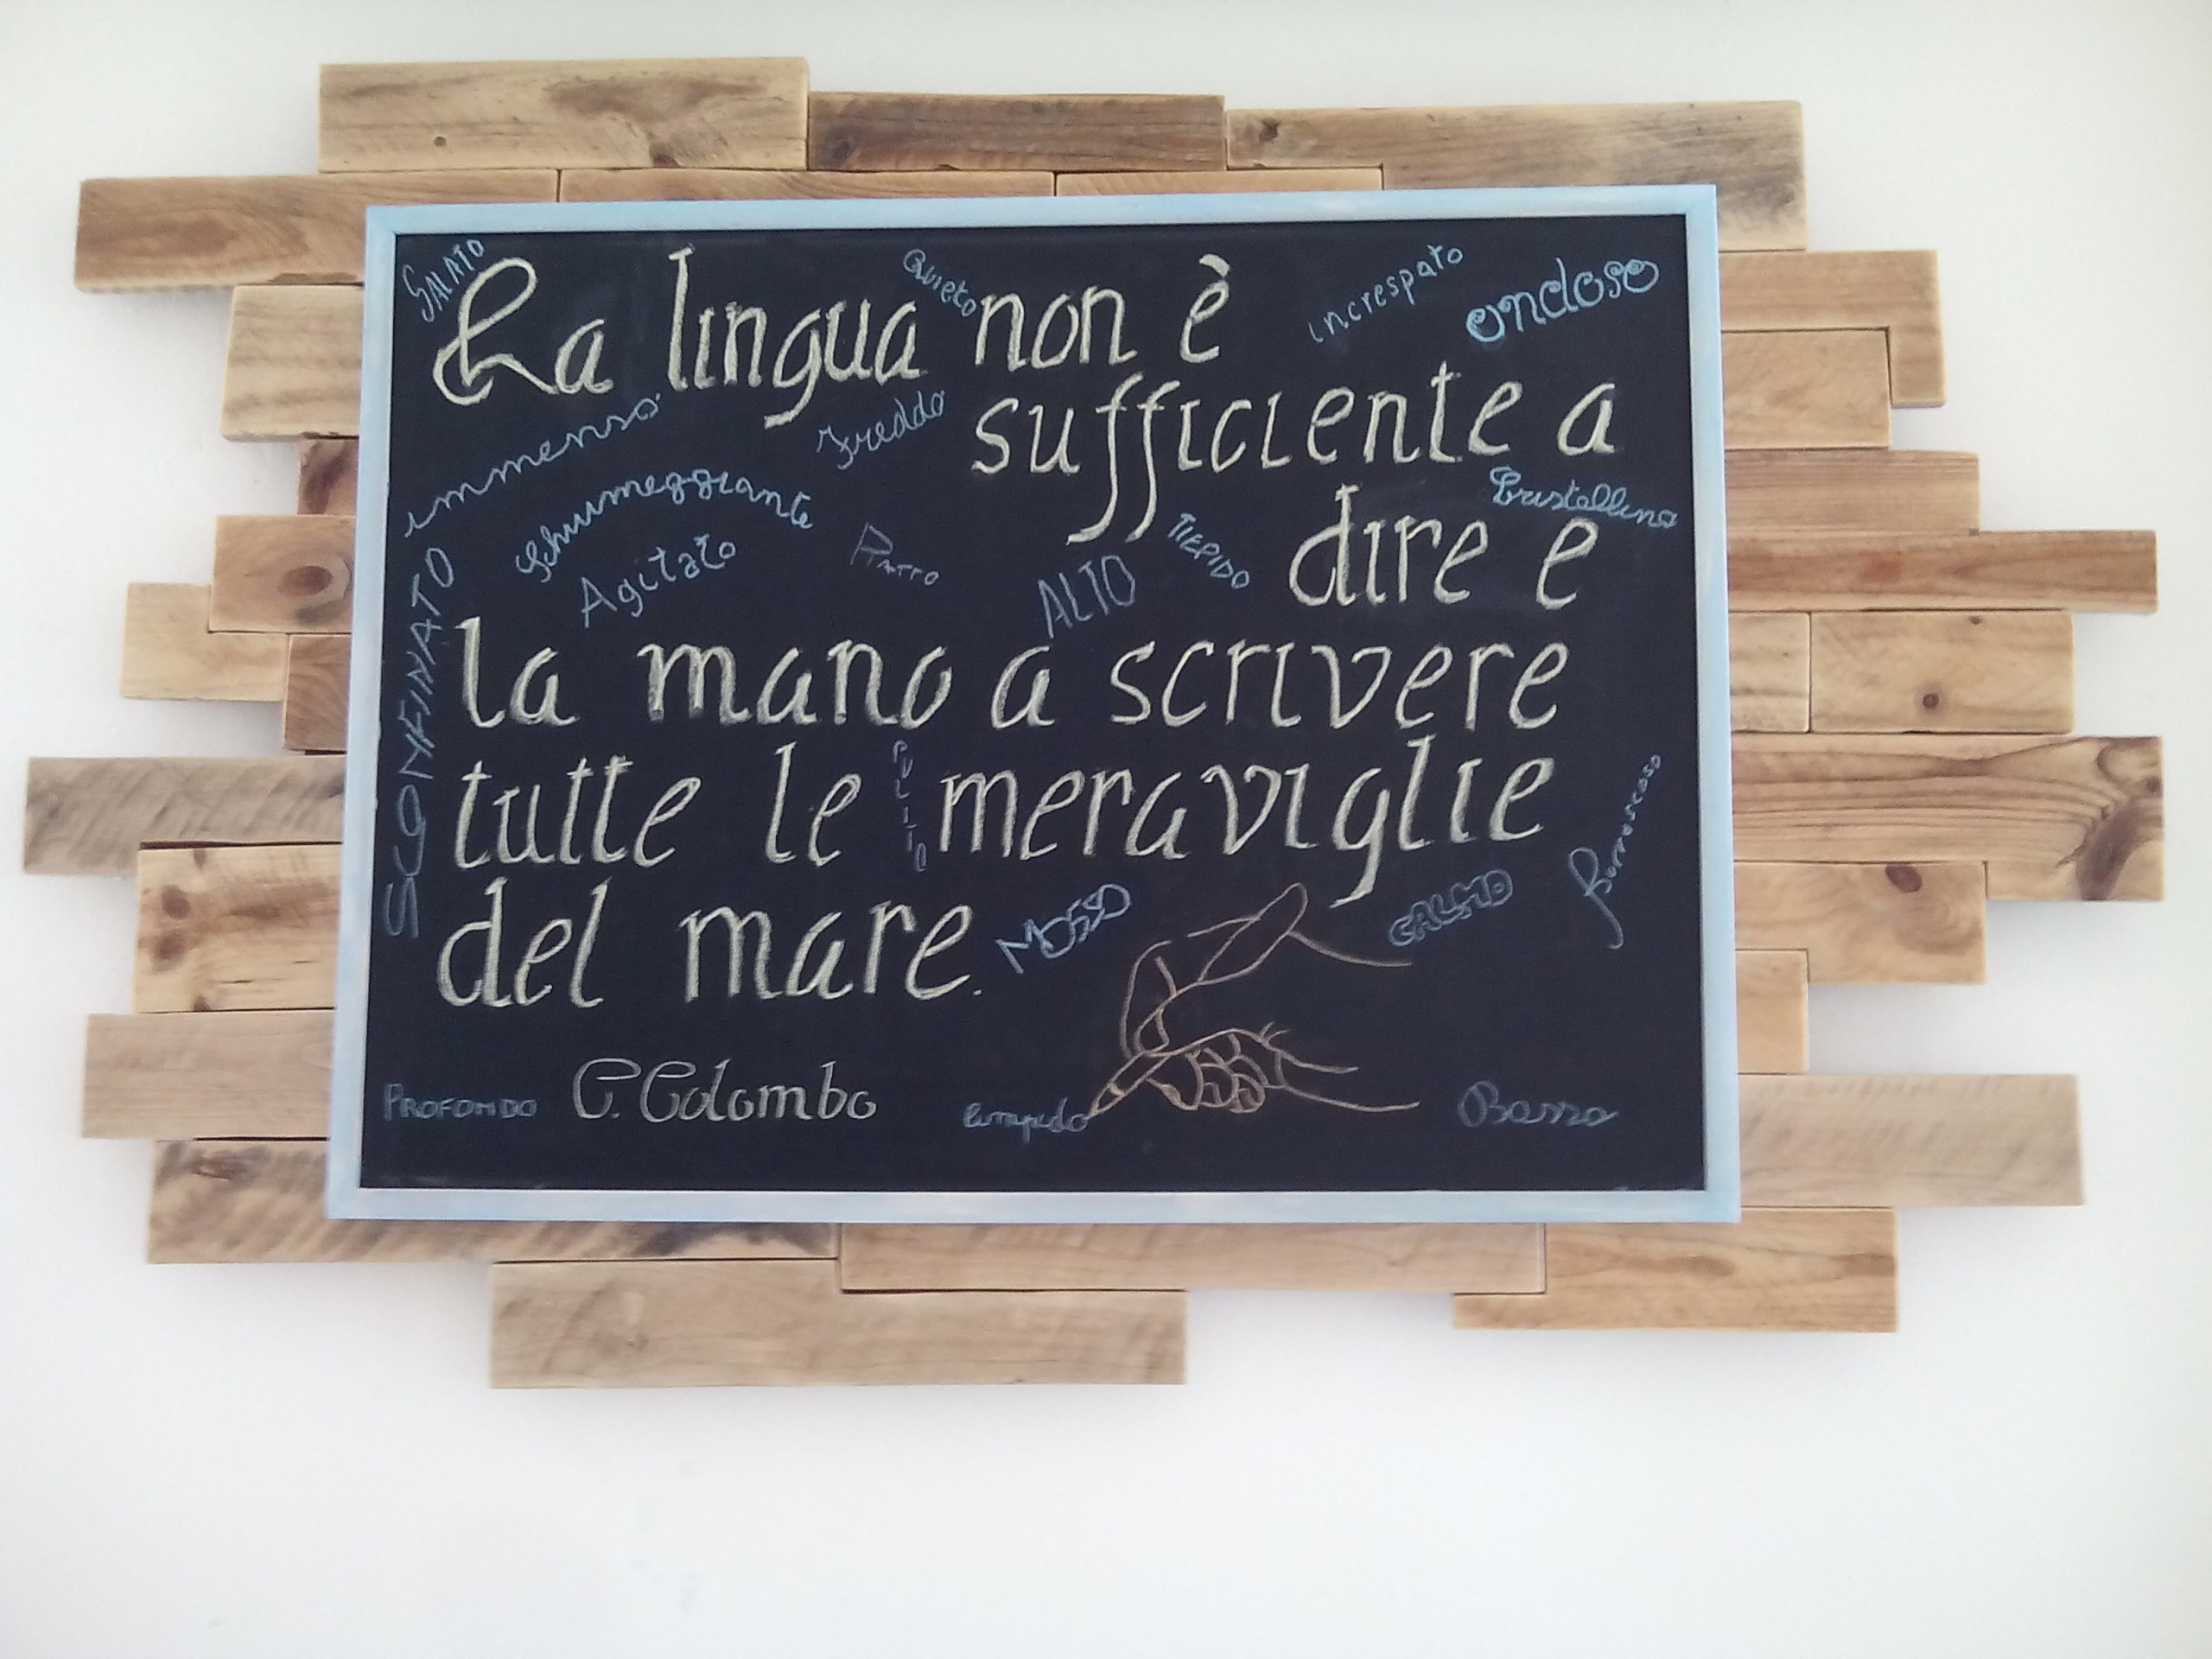 SALATO
Quieto
increspato
ondoso
La lingua non è
sufficiente a
immenso
Freddo
Schiumeggiante
Cristallino
dire e
Agitato
PIATTO
TIEPIDO
ALTO
SCONFINATO
la mano a scrivere
tutte le meraviglie
PULITO
Burrascoso
del mare.
MOSSO
CALMO
PROFONDO
C. Colombo
Limpido
Basso